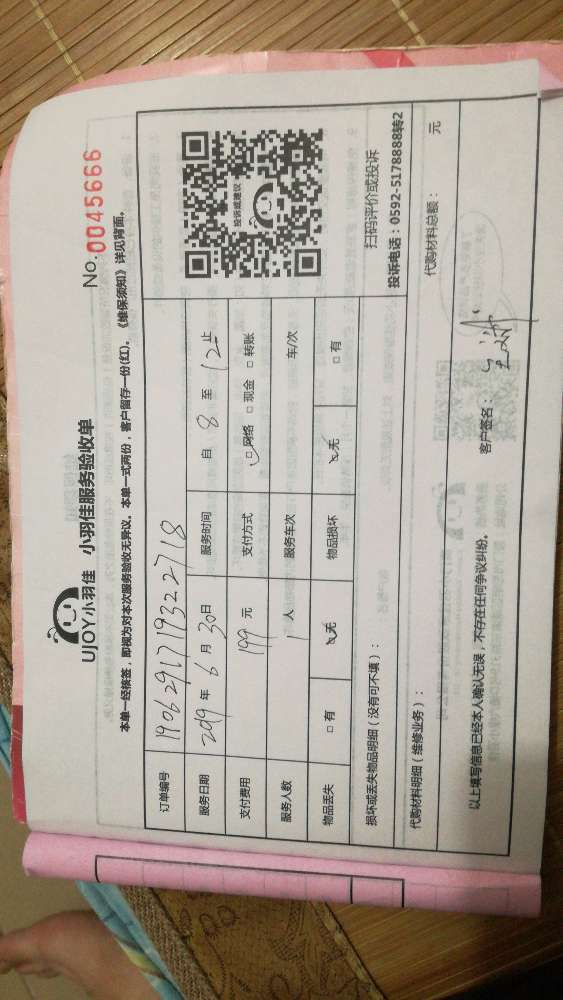 UJOY小羽佳 小羽佳服务验收单 No.0045666
本单一经核签，即视为对本次服务验收无异议。本单一式两份，客户留存一份(红)。《维保须知》详见背面。
订单编号 190629171932 2718
服务日期 2019年 6月 30日 服务时间 自 8 至 12 止
支付费用 199 元 支付方式 □网络 □现金 □转账
服务人数 1 人 服务车次 车/次
物品丢失 □有 □无 物品损坏 □无 □有
投诉或建议
扫码评价或投诉
投诉电话：0592-5178888转2
损坏或丢失物品明细（没有可不填）：
代购材料明细（维修业务）： 代购材料总额： 元
以上填写信息已经本人确认无误，不存在任何争议纠纷。
客户签名：